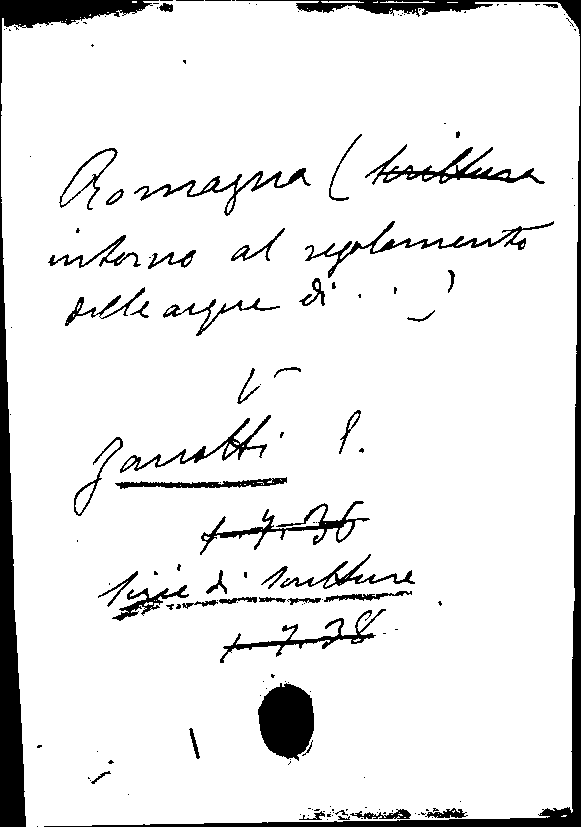 Romagna (scrittura
intorno al regolamento
delle acque di . . . )
V
Zanotti E.
+ 7. 36
Serie di scritture
+ 7. 38